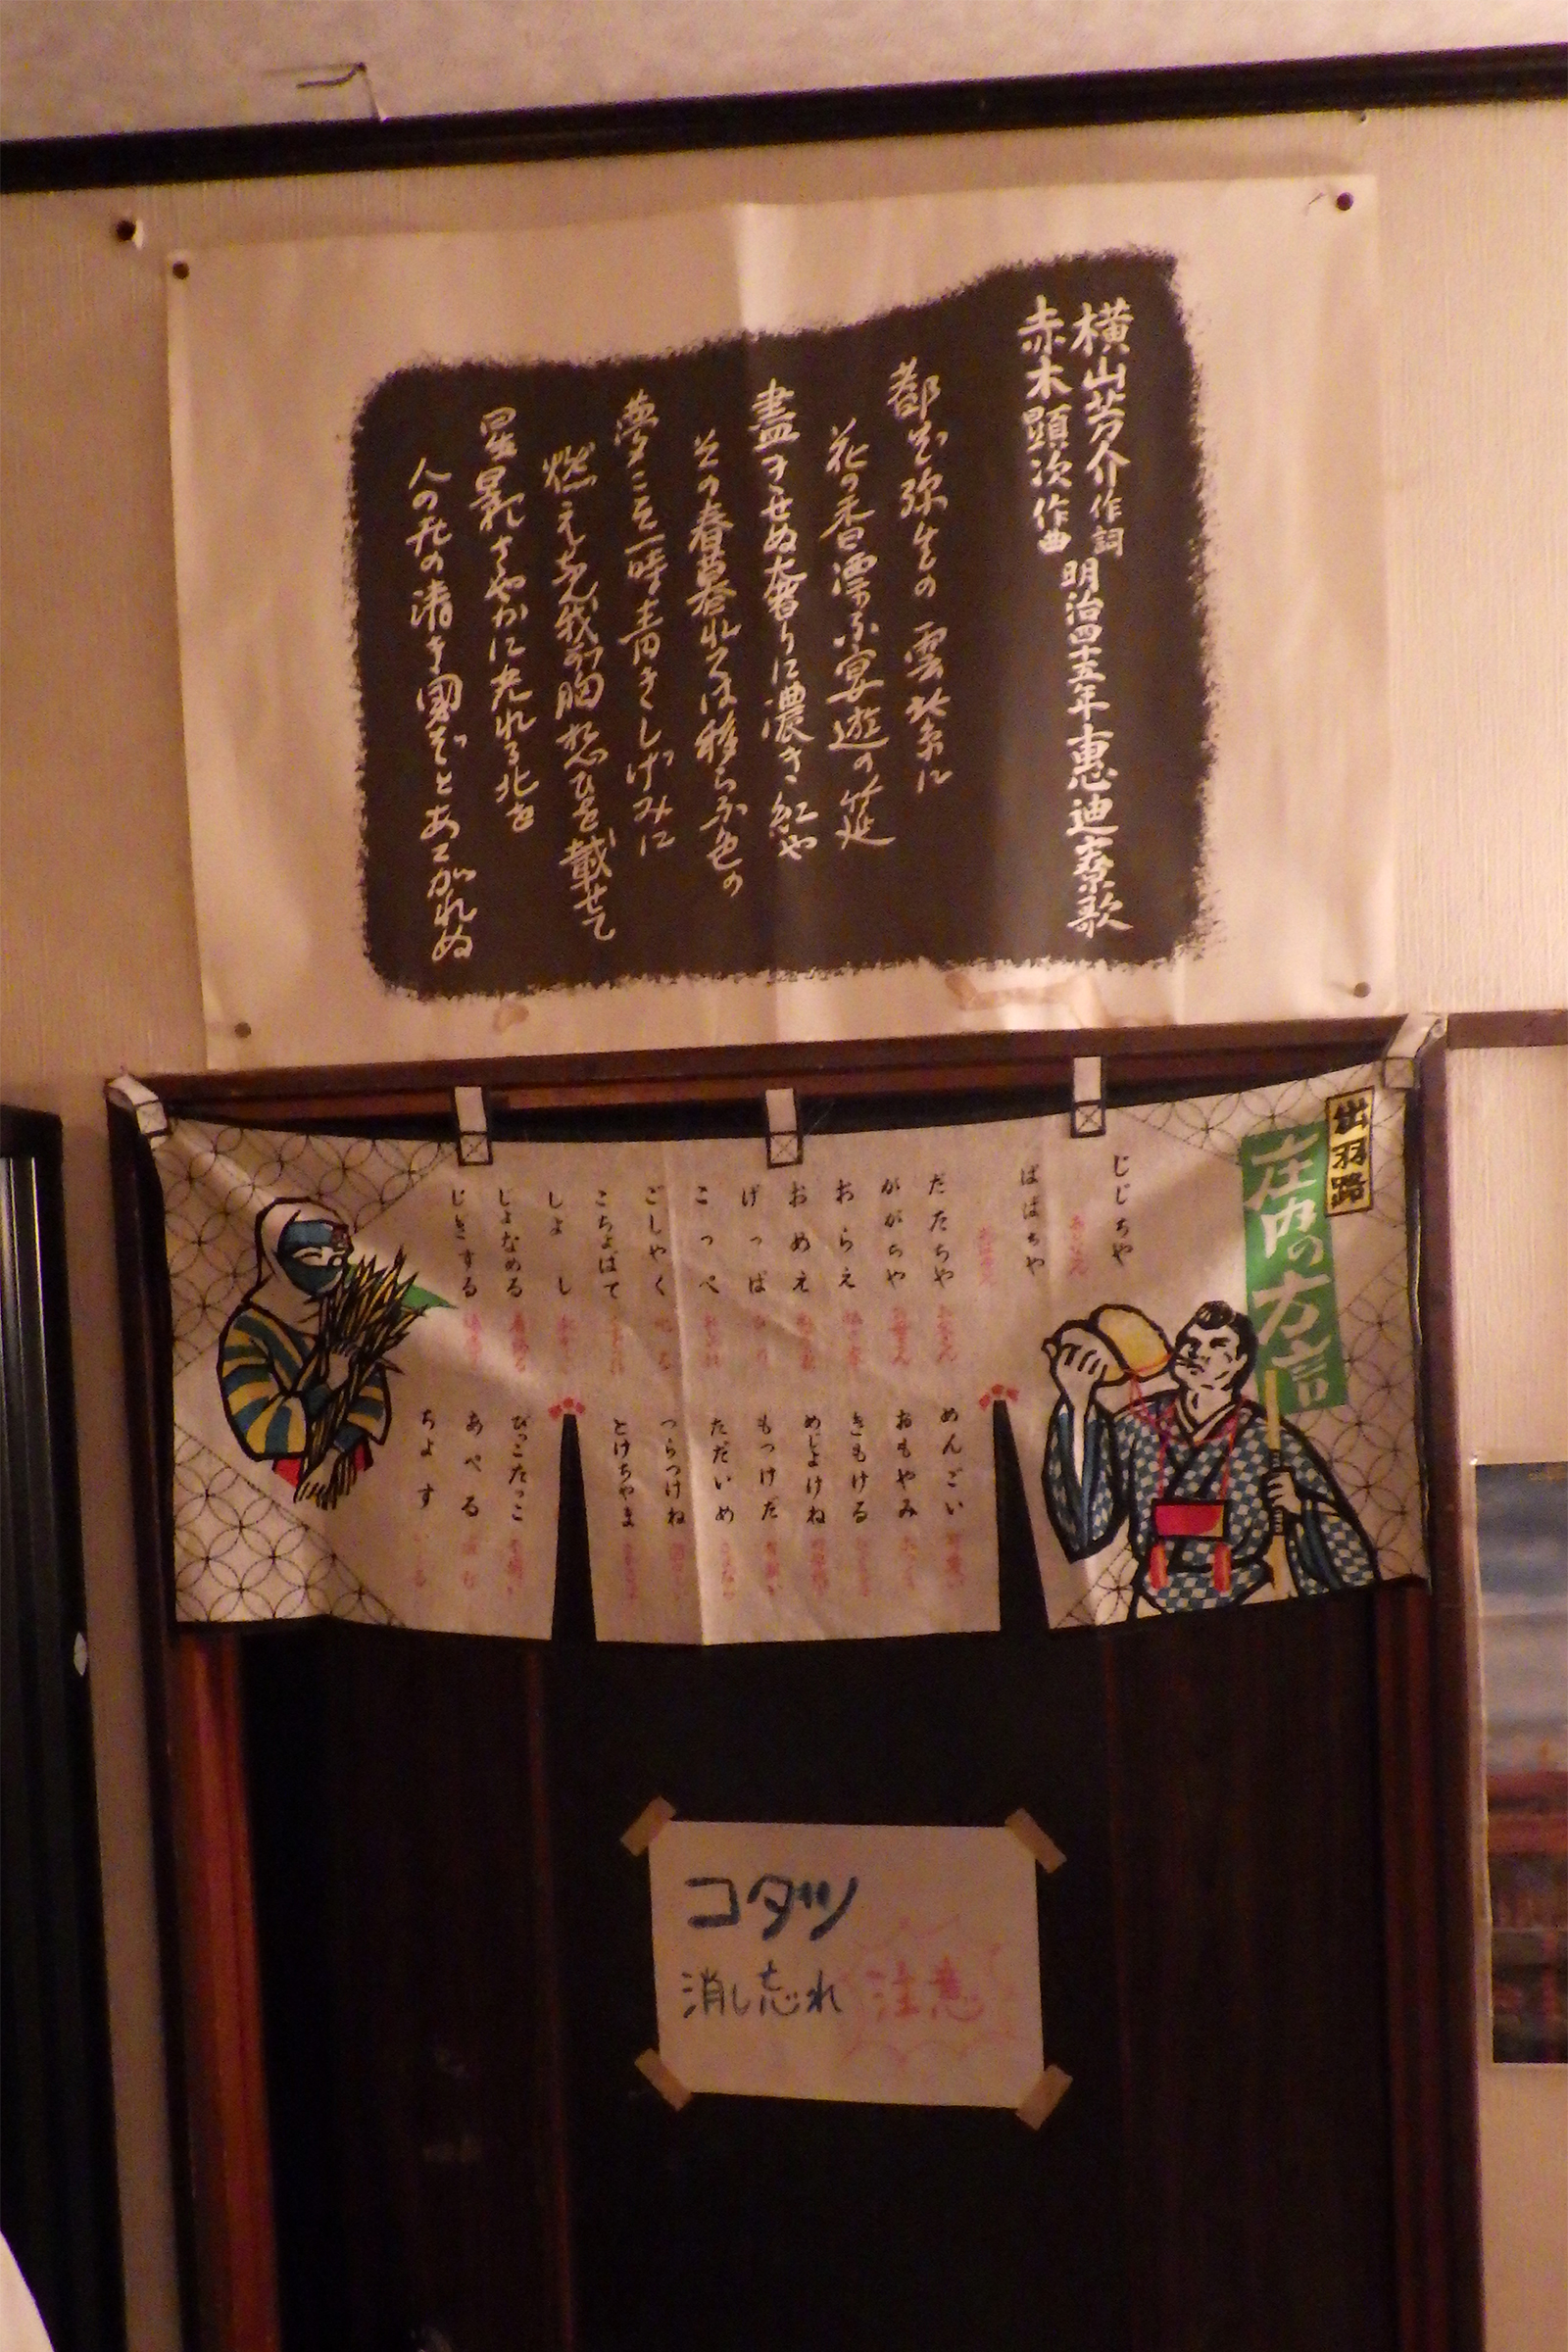 横山芳介作詞
赤木顕次作曲
明治四十五年恵迪寮歌
都ぞ弥生の雲紫に
花の香漂ふ宴遊の筵
盡きせぬ奢りに濃き紅や
その春暮れては移らふ色の
夢こそ一時青きしげみに
燃えなん我が胸想ひを載せて
星影さやかに光れる北を
人の世の清き國ぞとあこがれぬ
出羽路
庄内の方言
じじちや
ばばちや
だだちや
ががちや
おらえ
おめえ
げっぱ
こっぺ
ごしやく
こちょばて
しょし
しょなめる
じきする
めんごい
おもやみ
きもける
めじょけね
もっけだ
ただいめ
つらつけね
とけちやま
びっこたっこ
あべる
ちょす
コタツ
消し忘れ 注意